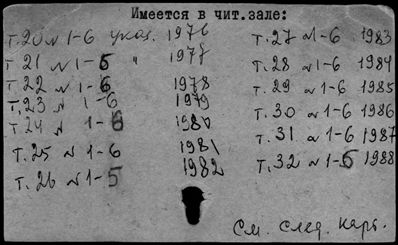 Имеется в чит.зале:
т.20 № 1-6 указ. 1976
т.21 № 1-6 " 1977
т.22 № 1-6 1978
т.23 № 1-6 1979
т.24 № 1-6 1980
т.25 № 1-6 1981
т.26 № 1-5 1982
т.27 № 1-6 1983
т.28 № 1-6 1984
т.29 № 1-6 1985
т.30 № 1-6 1986
т.31 № 1-6 1987
т.32 № 1-6 1988
См. след. карт.